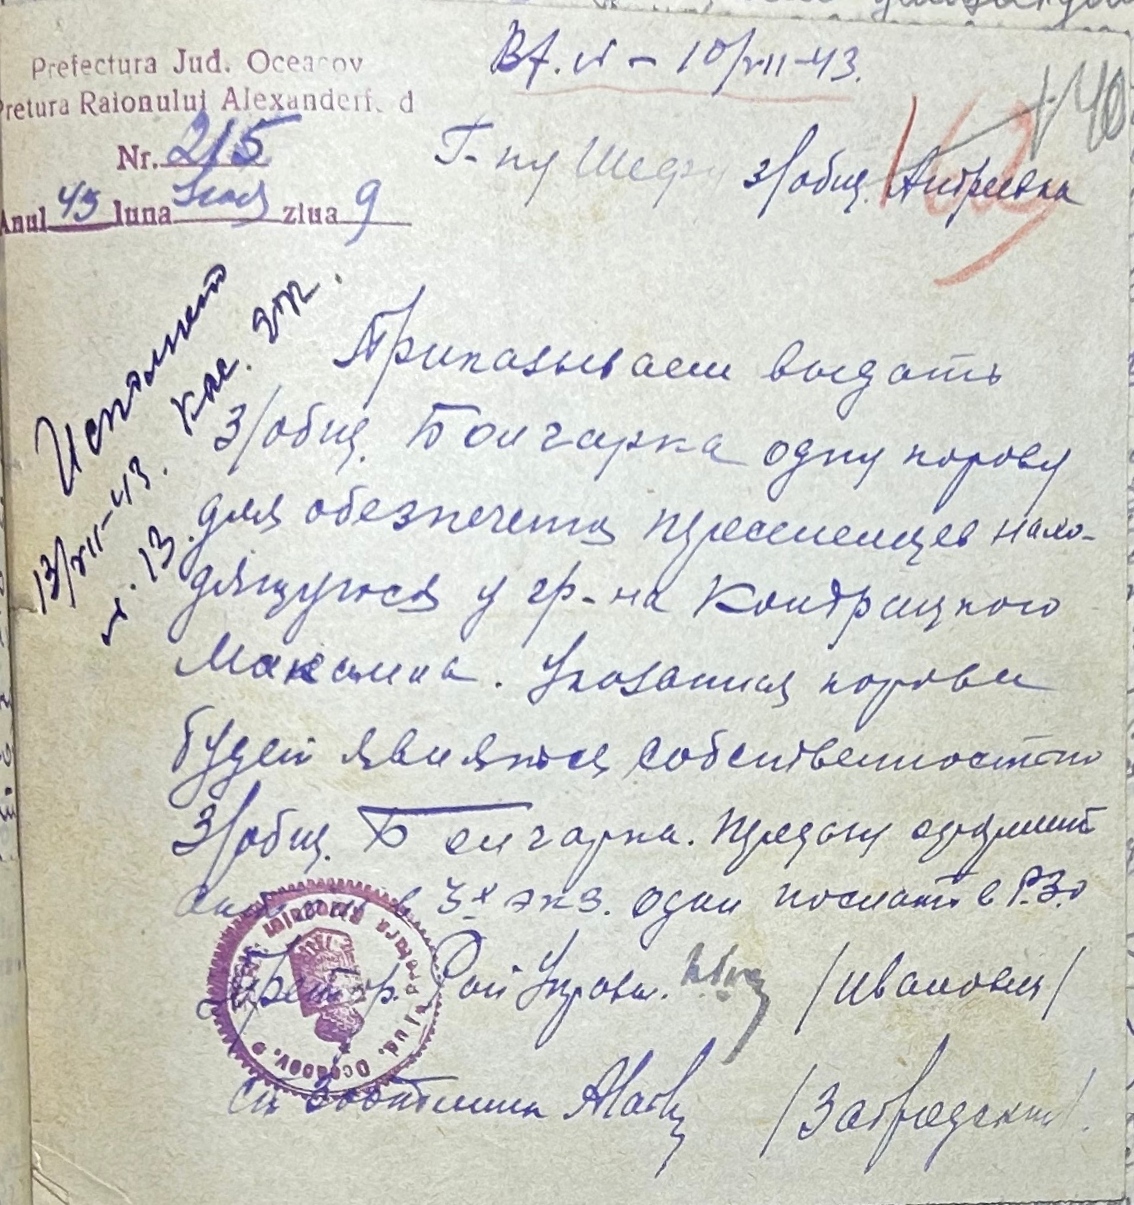 Prefectura Jud. Oceacov
Pretura Raionului Alexanderf. d
Nr. 215
Anul 43 luna Июль ziua 9
Вх. 15 – 10/VII-43.
Г-ну Шефу З/общ. Андреевка
140
Исполнен
13/VII-43.
Приказываем выдать
З/общ. Болгарка одну корову
для обезпечения пересменцев нахо-
дящуюся у гр-на Кондрацкого
Максима. Указанная корова
будет являться собственностью
З/общ. Болгарка. Передачу оформит
актом в 3х экз. один послать в Р.З.О
Претор. Рай Управы. /Иванович/
/Завродский/